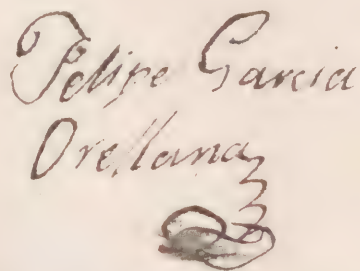 Felipe Garcia
Orellana